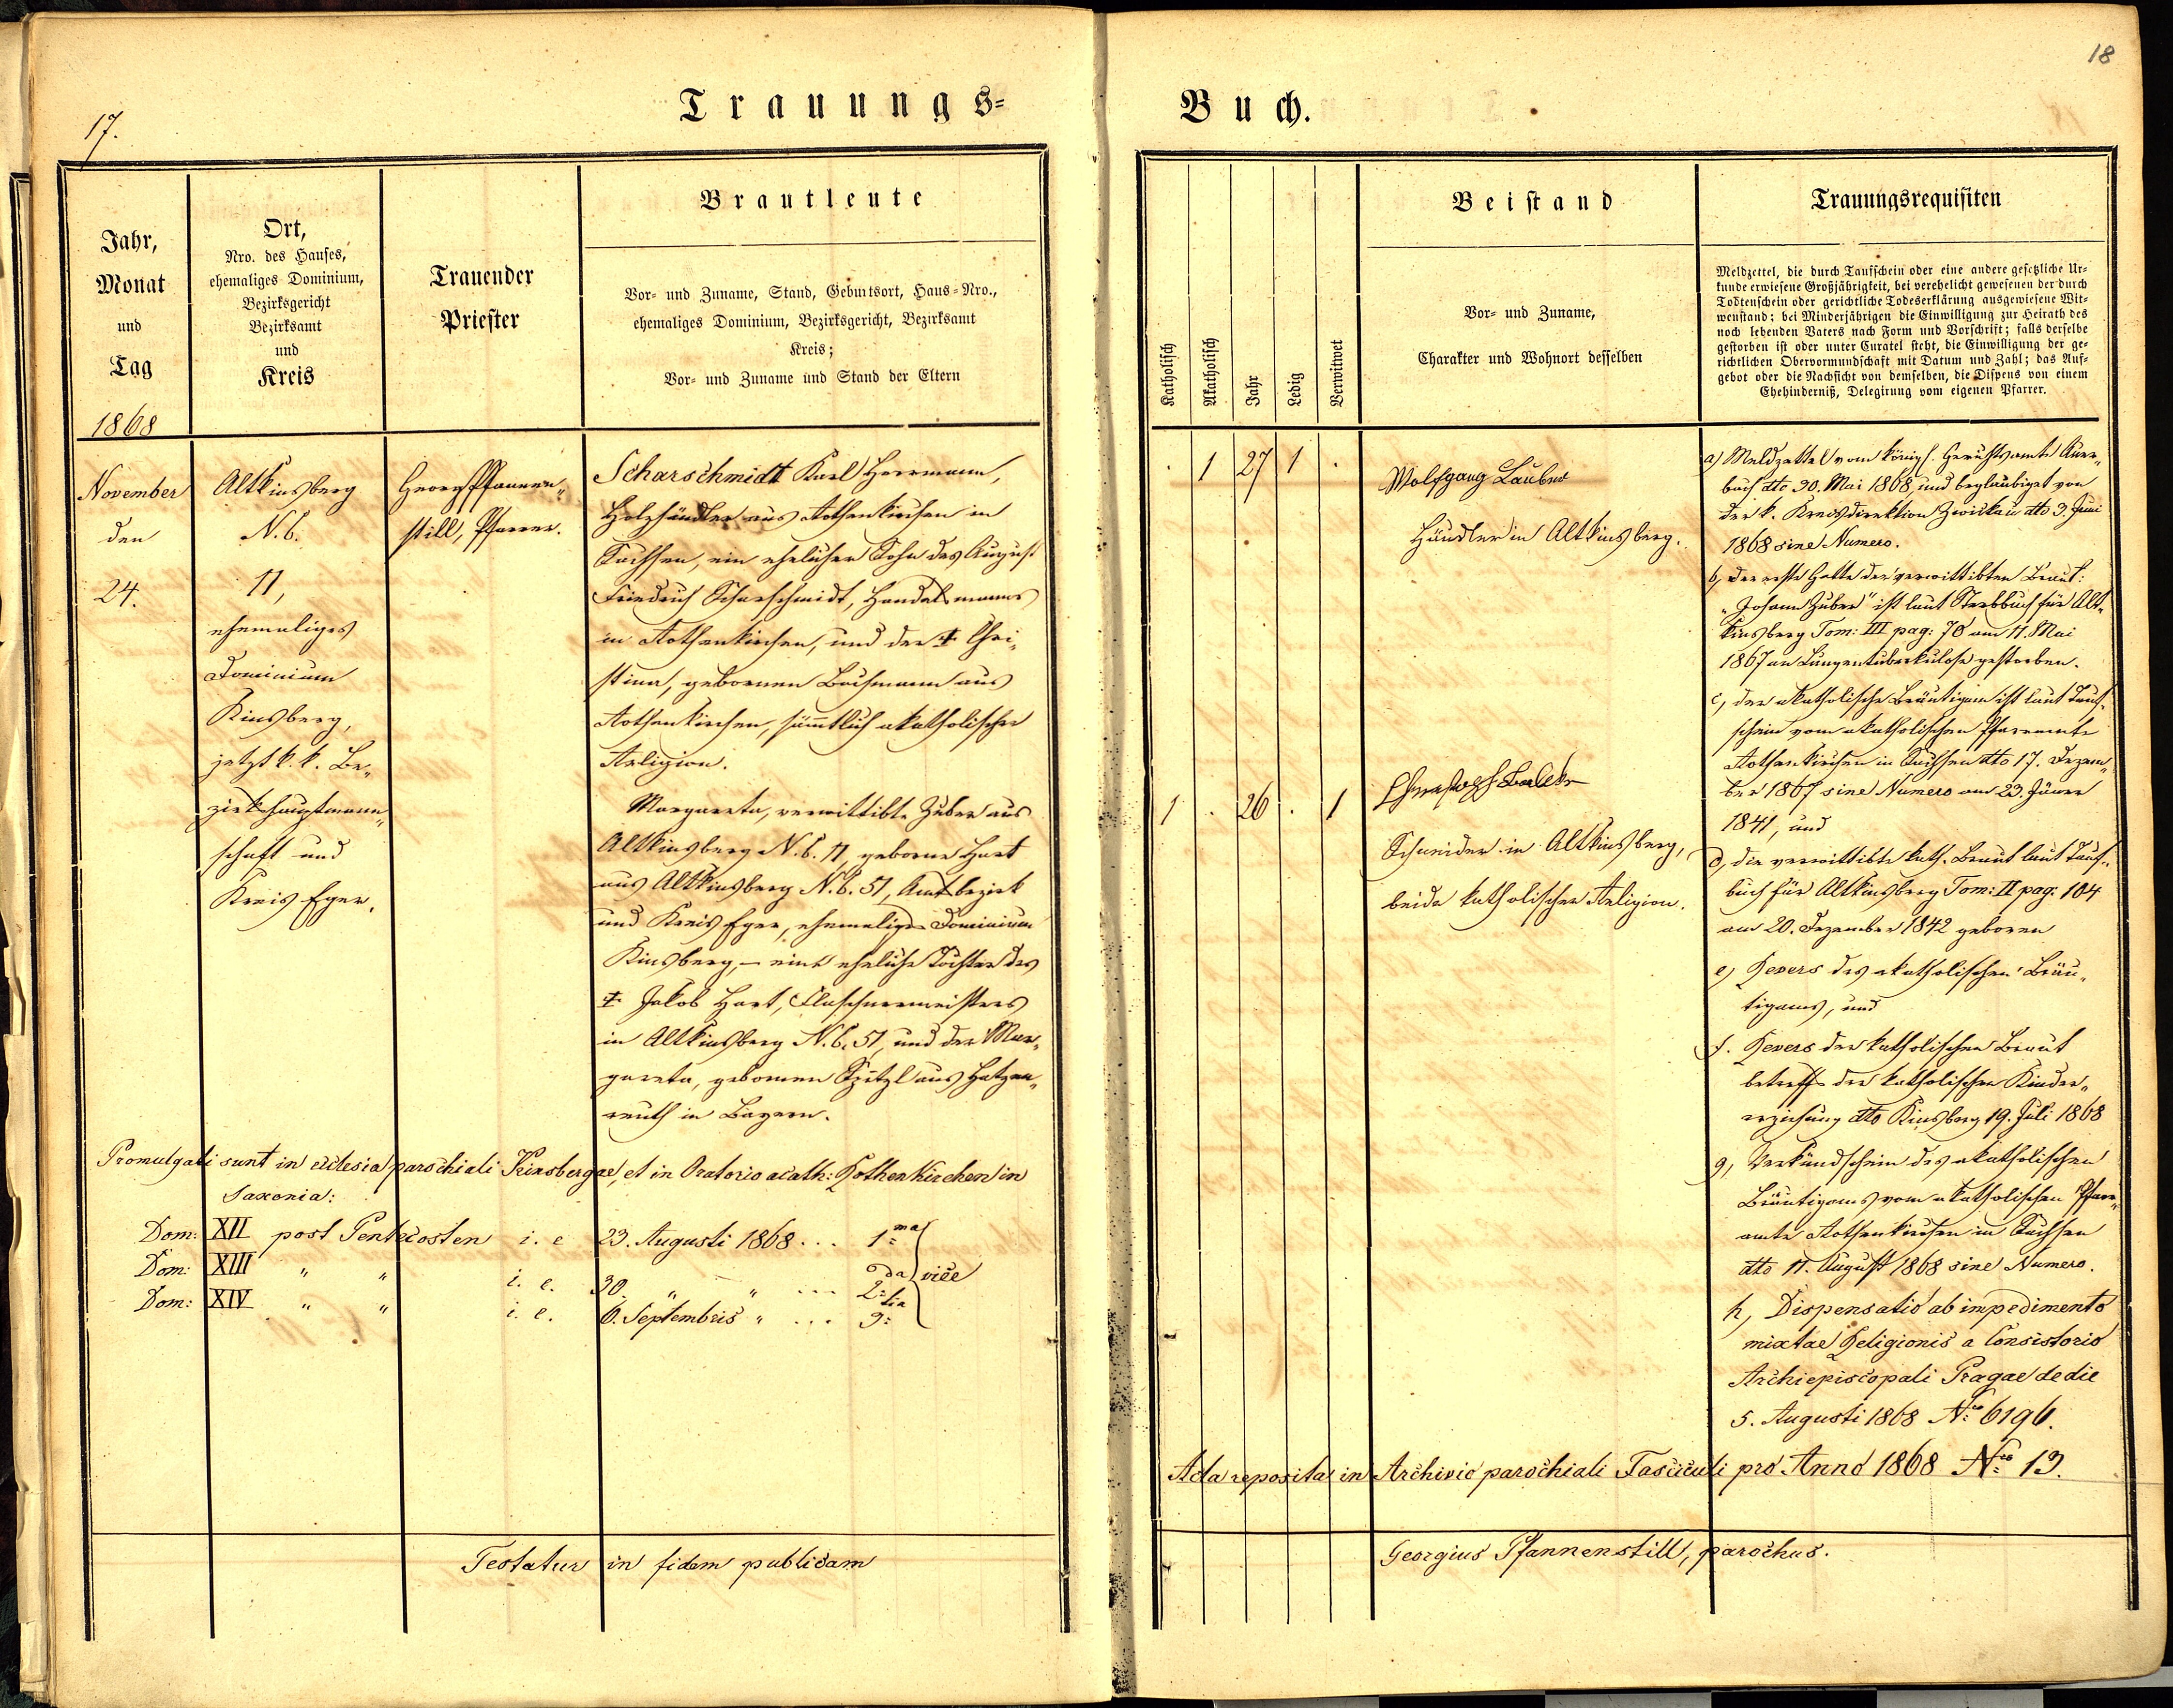 17.
18
Trauungs-
Buch.
Jahr,
Monat
und
Tag
Ort,
Nro. des Hauses,
ehemaliges Dominium,
Bezirksgericht
Bezirksamt
und
Kreis
Trauender
Priester
Brautleute
Vor- und Zuname, Stand, Geburtsort, Haus-Nro.,
ehemaliges Dominium, Bezirksgericht, Bezirksamt
Kreis;
Vor- und Zuname und Stand der Eltern
1868
November
den
24.
Altkinsberg
N. C.
11,
ehemaliges
Dominium
Kinsberg,
jetzt k. k. Be„
zirkshauptmann„
schaft und
Kreis Eger.
Georg Pfannen„
still, Pfarrer.
Scharschmidt Karl Herrmann,
Holzhändler aus Rothenkirchen in
Sachsen, ein ehelicher Sohn des August
Friedrich Scharschmidt, Handelsmanns
in Rothenkirchen, und der † Chri„
stina, gebornen Bachmann aus
Rothenkirchen, sämtlich akatholischer
Religion.
Margareta, verwittibte Zuber aus
Altkinsberg N. C. 11, geborne Hart
aus Altkinsberg N. C. 51, Amtsbezirk
und Kreis Eger, ehemaliges Dominium
Kinsberg, – eine eheliche Tochter des
† Jakob Hart, Flaschnermeisters
in Altkinsberg N. C. 51, und der Mar„
gareta, gebornen Spitzl aus Hatzen„
reuth in Bayern.
Promulgati sunt in ecclesia parochiali Kinsbergae, et in Oratorio acath: Rothenkirchen in
Saxonia:
Dom: XII post Pentecosten i. e 23. Augusti 1868 ... 1ma
Dom: XIII „ „ i. e. 30. „ „ ... 2da vice
Dom: XIV „ „ i. e. 6. Septembris „ ... 3tia
Testatur in fidem publicam
Katholisch
Akatholisch
Jahr
Ledig
Verwitwet
Beistand
Vor- und Zuname,
Charakter und Wohnort desselben
Trauungsrequisiten
Meldzettel, die durch Taufschein oder eine andere gesetzliche Ur-
kunde erwiesene Großjährigkeit, bei verehelicht gewesenen der durch
Todtenschein oder gerichtliche Todeserklärung ausgewiesene Wit-
wenstand; bei Minderjährigen die Einwilligung zur Heirath des
noch lebenden Vaters nach Form und Vorschrift; falls derselbe
gestorben ist oder unter Curatel steht, die Einwilligung der ge-
richtlichen Obervormundschaft mit Datum und Zahl; das Auf-
gebot oder die Nachsicht von demselben, die Dispens von einem
Ehehinderniß, Delegirung vom eigenen Pfarrer.
. 1 27 1 .
Wolfgang Lauber
Händler in Altkinsberg.
1 . 26 . 1
Christoph
Schneider in Altkinsberg,
beide katholischer Religion.
a) Meldzettel vom königl. Gerichtsamte Auer„
bach dto 30. Mai 1868, und beglaubiget von
der k. Kreisdirektion Zwickau dto 3. Juni
1868 sine Numero.
b, der erste Gatte der verwittibten Braut:
„Johann Zuber" ist laut Sterbbuch für Alt„
kinsberg Tom: III pag: 70 am 11. Mai
1867 an Lungentuberkulose gestorben.
c, der akatholische Bräutigam ist laut Tauf„
schein vom akatholischen Pfarramte
Rothenkirchen in Sachsen dto 17. Dezem„
ber 1867 sine Numero am 23. Jäner
1841, und
d, die verwittibte kath. Braut laut Tauf„
buch für Altkinsberg Tom: II pag: 104
am 20. Dezember 1842 geboren
e, Revers des akatholischen Bräu„
tigams, und
f. Revers der katholischen Braut
betreffs der katholischen Kinder„
erziehung dto Kinsberg 19. Juli 1868
g, Verkündschein des akatholischen
Bräutigams vom akatholischen Pfarr„
amte Rothenkirchen in Sachsen
dto 11. August 1868 sine Numero.
h, Dispensatio ab impedimento
mixtae Religionis a Consistorio
Archiepiscopali Pragae de die
5. Augusti 1868 Nro 6196.
Acta reposita in Archivio parochiali Fasciculi pro Anno 1868 Nro 13.
Georgius Pfannenstill, parochus.